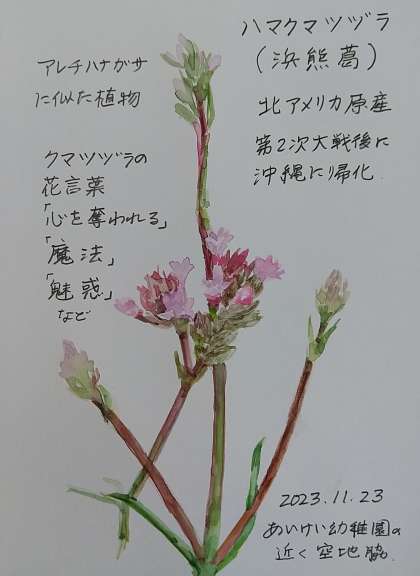 ハマクマツヅラ
(浜熊葛)
北アメリカ原産
第2次大戦後に
沖縄に帰化.
アレチハナガサ
に似た植物
クマツヅラの
花言葉
「心を奪われる」
「魔法」
「魅惑」
など
2023.11.23
あいけい幼稚園の
近く空地脇.